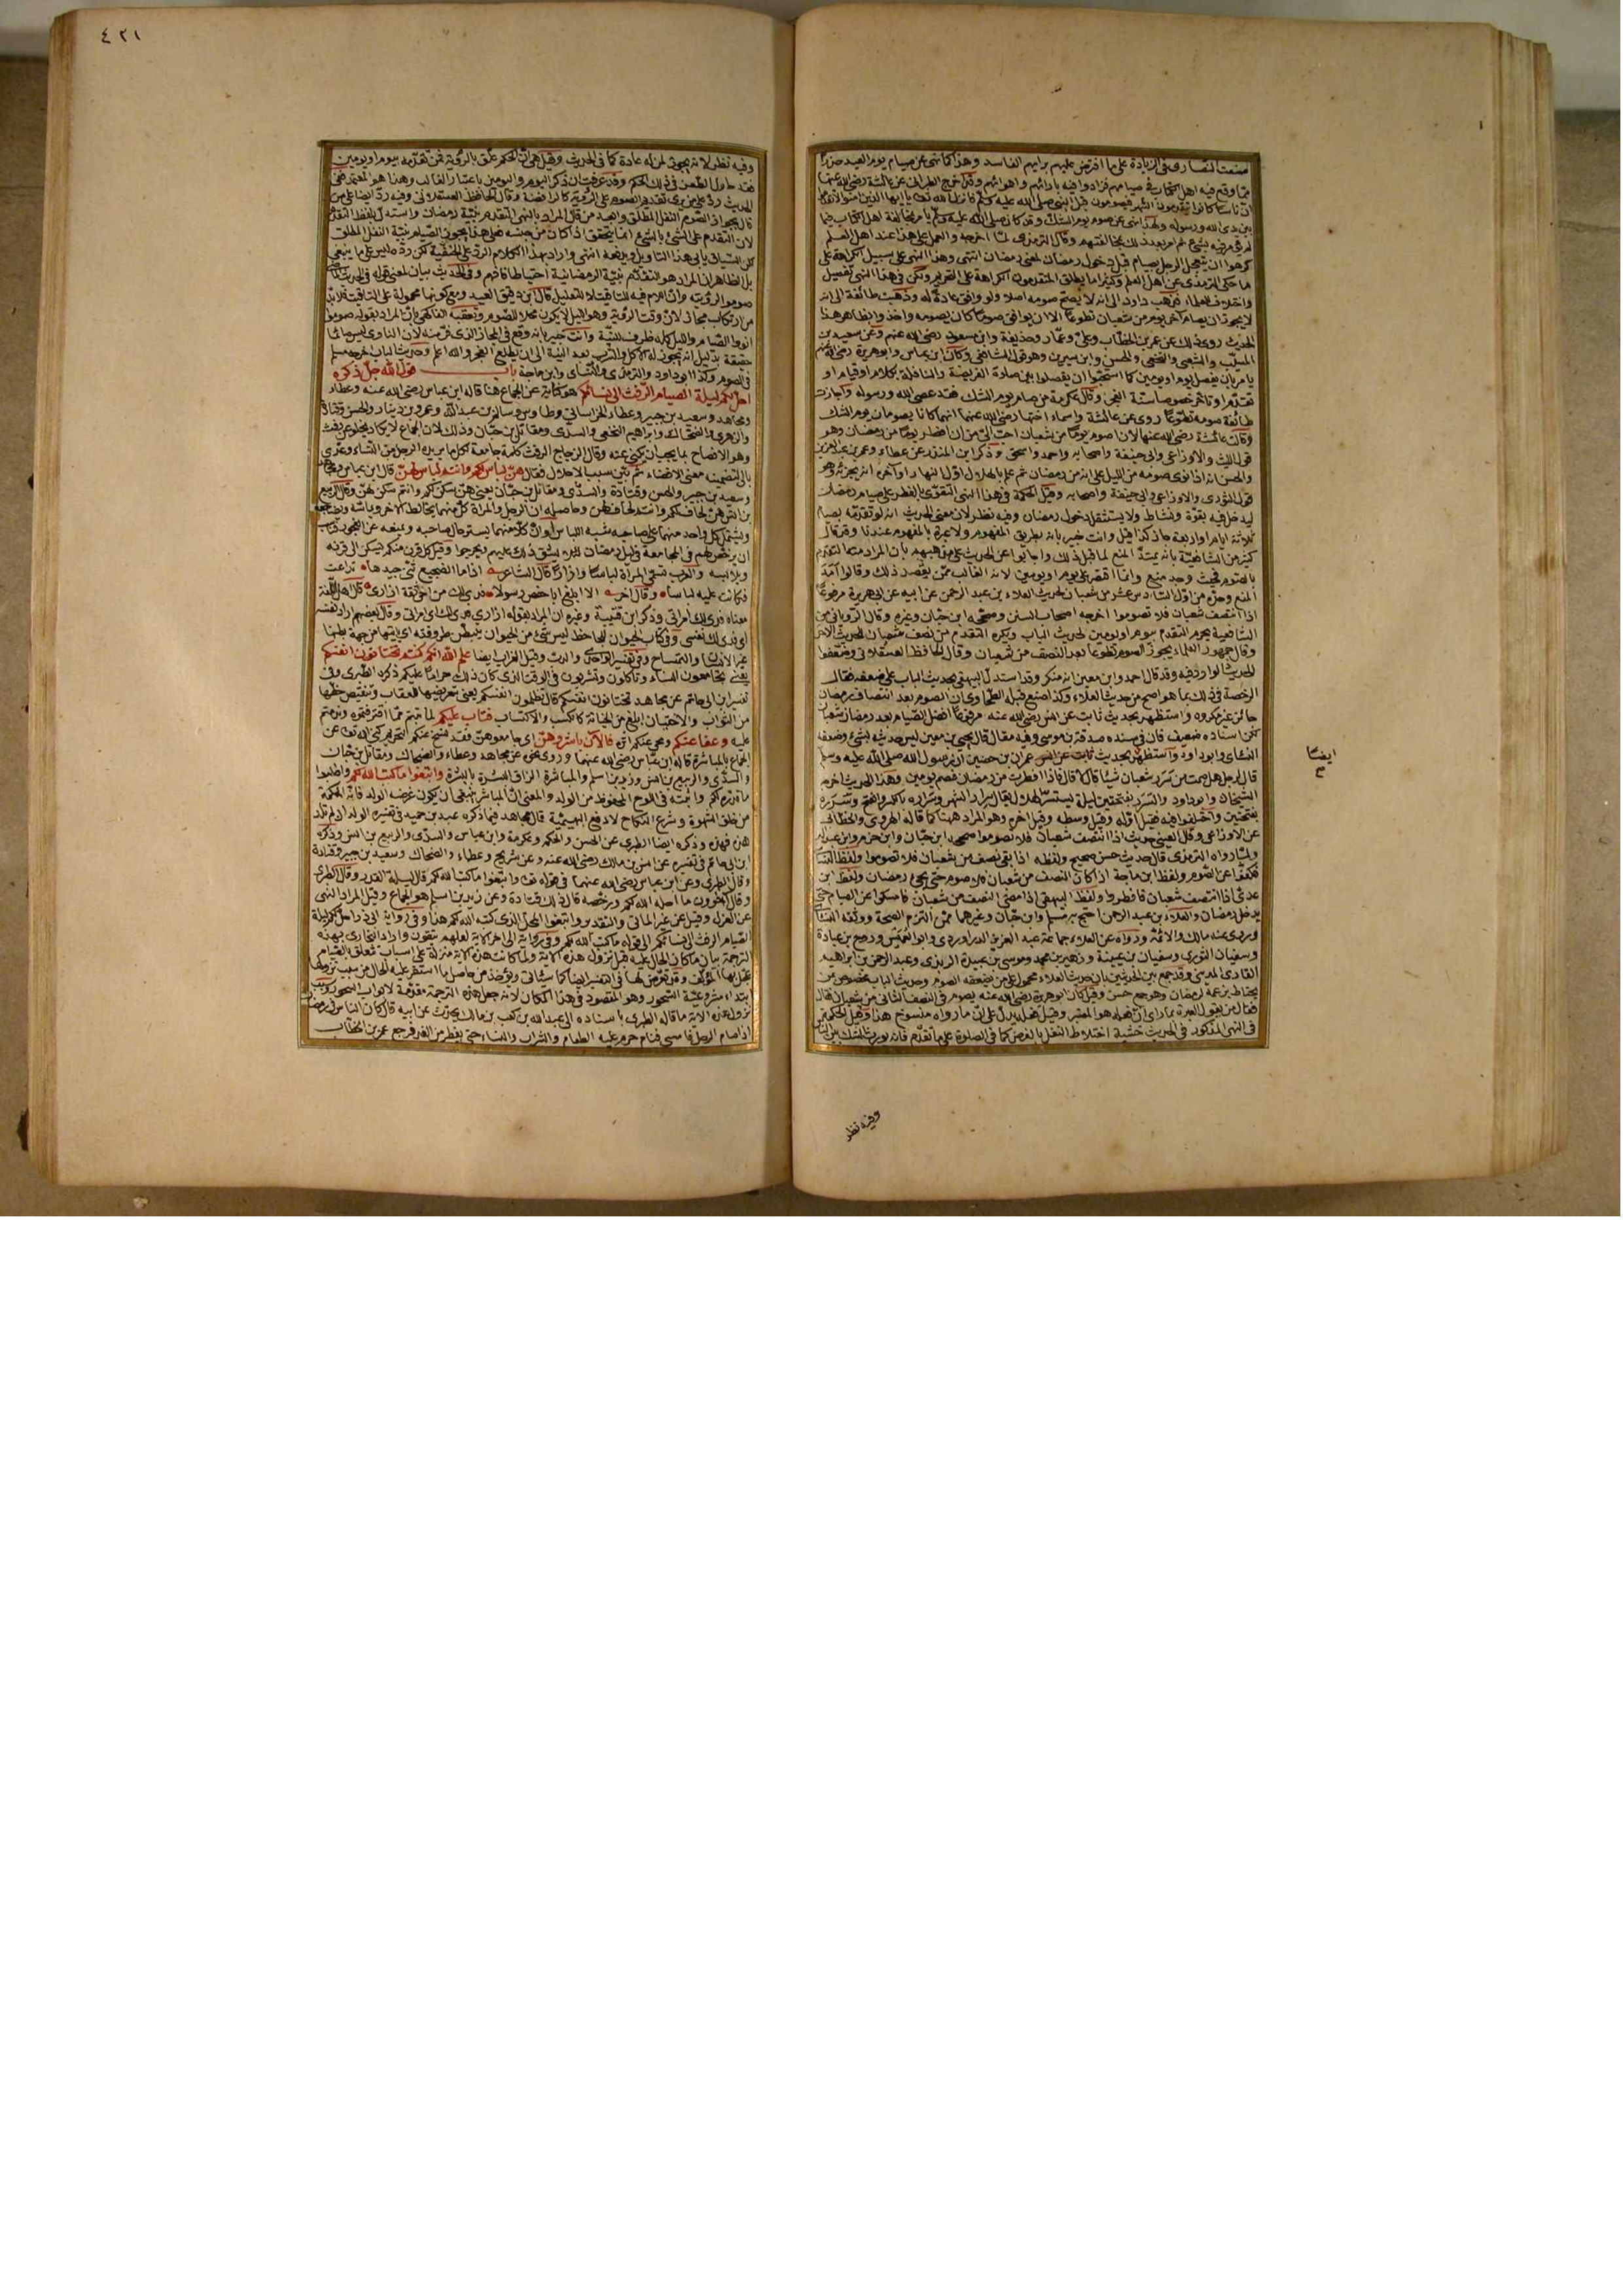 صنعت النصارى في الزيادة على ما افترض عليهم برأيهم الفاسد وهذا كما نهى عن صيام يوم العيد حذرا
مما وقع فيه اهل الكتاب في صيامهم فزادوا فيه بآرائهم واهوائهم وقد اخرج الطبراني عن عائشة رضي الله عنها
ان ناسا كانوا يتقدمون الشهر فيصومون قبل النبي صلى الله عليه وسلم فانزل الله تعالى يا ايها الذين امنوا لا تقدموا
بين يدي الله ورسوله ولهذا نهى عن صوم يوم الشك وقد كان صلى الله عليه وسلم يأمر بمخالفة اهل الكتاب
كرهوا ان يتعجل الرجل بصيام قبل دخول رمضان لمعنى رمضان انتهى وهذا النهي على سبيل الكراهة على
ما حكى الترمذي عن اهل العلم وكثيرا ما يطلق المتقدمون الكراهة على التحريم ولكن في هذا النهي تفصيل
واختلاف للعلماء فذهب داود الى انه لا يصح صومه اصلا ولو وافق عادة له وذهبت طائفة الى انه
لا يجوز ان يصام آخر يوم من شعبان تطوعا الا ان يوافق صوما كان يصومه واخذوا بظاهر هذا
الحديث روي ذلك عن عمر بن الخطاب وعلي وعمار وحذيفة وابن مسعود رضي الله عنهم وعن سعيد بن
المسيب والشعبي والنخعي والحسن وابن سيرين وهو قول الشافعي وكان ابن عباس وابو هريرة رضي الله عنهم
يأمران بفصل يوم او يومين كما استحبوا ان يفصلوا بين صلاة الفريضة والنافلة بكلام او قيام او
تقدم او تأخر وقال عكرمة من صام يوم الشك فقد عصى الله ورسوله واجازت
طائفة صومه تطوعا روي عن عائشة واسماء اختها رضي الله عنهما انهما كانا يصومان يوم الشك
وقالت عائشة رضي الله عنها لان اصوم يوما من شعبان احب الي من ان افطر يوما من رمضان وهو
قول الليث والاوزاعي وابي حنيفة واصحابه واحمد واسحق وذكر ابن المنذر عن عطاء وعمر بن عبد العزيز
والحسن انه اذا نوى صومه من الليل على انه من رمضان ثم علم بالهلال اول النهار او آخره انه يجزئه وهو
قول الثوري والاوزاعي وابي حنيفة واصحابه وقيل الحكمة في هذا النهي التقوي بالفطر على صيام رمضان
ليدخل فيه بقوة ونشاط ولا يستثقل دخول رمضان وفيه نظر لان معنى الحديث انه لو تقدمه بصيام
ثلاثة ايام او اربعة جاز كذا قيل وانت خبير بانه بطريق المفهوم ولا عبرة بالمفهوم عندنا وقد قال
كثير من الشافعية بانه يمتد المنع لما قبل ذلك واجابوا عن الحديث على مذهبهم بان المراد منه التقدم
بالصوم فحيث وجد منع وانما اقتصر على يوم او يومين لانه الغالب ممن يقصد ذلك وقالوا امد
المنع وحده من اول السادس عشر من شعبان لحديث العلاء بن عبد الرحمن عن ابيه عن ابي هريرة مرفوعا
اذا انتصف شعبان فلا تصوموا اخرجه اصحاب السنن وصححه ابن حبان وغيره وقال الروياني من
الشافعية يحرم التقدم بيوم او يومين لحديث الباب ويكره التقدم من نصف شعبان للحديث الآخر
وقال جمهور العلماء يجوز الصوم تطوعا بعد النصف من شعبان وقال الحافظ العسقلاني وضعفوا
الحديث الوارد فيه وقد قال احمد وابن معين انه منكر وقد استدل البيهقي بحديث الباب على ضعفه فقال
الرخصة في ذلك بما هو اصح من حديث العلاء وكذا صنع قبله الطحاوي ان الصوم بعد انتصاف رمضان
جائز غير مكروه واستظهر بحديث ثابت عن انس رضي الله عنه مرفوعا افضل الصيام بعد رمضان شعبان
لكن اسناده ضعيف فان في سنده صدقة بن موسى وفيه مقال قال يحيى بن معين ليس حديثه بشيء وضعفه
النسائي وابو داود واستظهر بحديث عمران بن حصين ان رسول الله صلى الله عليه وسلم
قال لرجل هل صمت من سرر شعبان شيئا قال لا قال فاذا افطرت من رمضان فصم يومين وهذا الحديث اخرجه
الشيخان وابو داود والسرر بفتحتين ليلة يستسر الهلال يقال سرار الشهر وسراره بالكسر والفتح وسرره
بفتحتين واختلفوا فيه فقيل اوله وقيل وسطه وقيل آخره وهو المراد ههنا كما قاله الهروي والخطابي
عن الاوزاعي وقال العيني حديث اذا انتصف شعبان فلا تصوموا صححه ابن حبان وابن حزم وابن عبد البر
ولما رواه الترمذي قال حديث حسن صحيح ولفظه اذا بقي نصف من شعبان فلا تصوموا ولفظ النسائي
فكفوا عن الصوم ولفظ ابن ماجة اذا كان النصف من شعبان فلا صوم حتى يجيء رمضان ولفظ ابن
عدي اذا انتصف شعبان فافطروا ولفظ البيهقي اذا مضى النصف من شعبان فامسكوا عن الصيام حتى
يدخل رمضان والعلاء بن عبد الرحمن احتج به مسلم وابن حبان وغيرهما ممن التزم الصحة ووثقه النسائي
وروى عنه مالك والائمة ورواه عن العلاء جماعة عبد العزيز الدراوردي وابو العميس وروح بن عبادة
وسفيان الثوري وسفيان بن عيينة وزهير بن محمد وموسى بن عبيدة الربذي وعبد الرحمن بن ابراهيم
القاري المديني وقد جمع بين الحديثين بان حديث العلاء محمول على من يضعفه الصوم وحديث الباب مخصوص بمن
يحتاط بزعمه لرمضان وهو جمع حسن وقيل كان ابو هريرة رضي الله عنه يصوم في النصف الثاني من شعبان فقال
من يقول العبرة بما رأى ان فعله هو المعتبر وقيل فعله يدل على ان ما رواه منسوخ هذا وقيل الحكمة
في النهي المذكور في الحديث خشية اختلاط النفل بالفرض كما في الصلوة على ما تقدم
ايضا
صح
وفيه نظر
٤٢١
وفيه نظر لانه يجوز لمن له عادة كما في الحديث وقيل هي ان الحكم علق بالرؤية فمن تقدمه بيوم او يومين
فقد حاول الطعن في ذلك الحكم وقد عرفت ان ذكر اليوم واليومين باعتبار الغالب وهذا هو المعتمد وفي
الحديث رد على من يرى تقديم الصوم على الرؤية كالرافضة وقال الحافظ العسقلاني وفيه رد ايضا على من
قال بجواز الصوم النفل المطلق وابعد من قال المراد بالنهي التقدم بنية رمضان واستدل بلفظ التقدم
لان التقدم على الشيء بالشيء انما يتحقق اذا كان من جنسه فعلى هذا يجوز الصيام بنية النفل المطلق
لكن السياق يأبى هذا التأويل ويدفعه انتهى واراد بهذا الكلام الرد على الحنفية لكن رده ليس على ما ينبغي
بل الظاهر ان المراد هو التقدم بنية الرمضانية احتياطا فافهم وفي الحديث بيان لمعنى قوله في الحديث
صوموا لرؤيته وان اللام فيه للتاقيت لا للتعليل قال ابن دقيق العيد ومع كونها محمولة على التاقيت فلا بد
من ارتكاب مجاز لان وقت الرؤية وهو الليل لا يكون محلا للصوم وتعقبه الفاكهي بان المراد بقوله صوموا
انووا الصيام والليل كله ظرف للنية وانت خبير بانه وقع في المجاز الذي فر منه لان الناوي ليس صائما
حقيقة بدليل انه يجوز له الاكل والشرب بعد النية الى ان يطلع الفجر والله اعلم وحديث الباب اخرجه مسلم
في الصوم وكذا ابو داود والترمذي والنسائي وابن ماجة باب قول الله جل ذكره
احل لكم ليلة الصيام الرفث الى نسائكم هو كناية عن الجماع هنا قاله ابن عباس رضي الله عنه وعطاء
ومجاهد وسعيد بن جبير وعطاء الخراساني وطاوس وسالم بن عبد الله وعمرو بن دينار والحسن وقتادة
والزهري والضحاك وابراهيم النخعي والسدي ومقاتل بن حيان وذلك لان الجماع لا يكاد يخلو عن رفث
وهو الافصاح بما يجب ان يكنى عنه وقال الزجاج الرفث كلمة جامعة لكل ما يريده الرجل من النساء وعدي
بالى لتضمينه معنى الافضاء ثم بين سبب الاحلال فقال هن لباس لكم وانتم لباس لهن قال ابن عباس ومجاهد
وسعيد بن جبير والحسن وقتادة والسدي ومقاتل بن حيان يعني هن سكن لكم وانتم سكن لهن وقال الربيع
بن انس هن لحاف لكم وانتم لحاف لهن وحاصله ان الرجل والمرأة كل منهما يخالط الآخر ويماسه ويضاجعه
ويشتمل كل واحد منهما على صاحبه شبه اللباس او لان كلا منهما يستر حال صاحبه ويمنعه عن الفجور
ان يرخص لهم في المجامعة في ليل رمضان لئلا يشق ذلك عليهم ويحرجوا وقيل كل قرن منكم يسكن الى قرنه
ويلابسه والعرب تسمي المرأة لباسا وازارا قال الشاعر اذا ما الضجيع ثنى جيدها تداعت
فكانت عليه لباسا وقال آخر الا ابلغ ابا حفص رسولا فدى لك من اخي ثقة ازاري قال اهل اللغة
معناه فدى لك امرأتي وذكر ابن قتيبة وغيره ان المراد بقوله ازاري فدى لك امرأتي وقال بعضهم اراد نفسه
اي فدى لك نفسي وفي كتاب الحيوان للجاحظ ليس شيء من الحيوان يتبطن طروقته اي يأتيها من جهة بطنها
غير الانسان والتمساح وفي تفسير الواحدي والدب وقيل الغراب ايضا علم الله انكم كنتم تختانون انفسكم
يعني تجامعون النساء وتأكلون وتشربون في الوقت الذي كان ذلك حراما عليكم ذكره الطبري وفي
تفسير ابن ابي حاتم عن مجاهد تختانون انفسكم قال تظلمون انفسكم يعني بتعريضها للعقاب وتنقيص حظها
من الثواب والاختيان ابلغ من الخيانة كالكسب والاكتساب فتاب عليكم لما تبتم مما اقترفتموه وندمتم
عليه وعفا عنكم ومحى عنكم اثره فالآن باشروهن اي جامعوهن فقد نسخ عنكم التحريم كنى الله تعالى عن
الجماع بالمباشرة قاله ابن عباس رضي الله عنهما وروي نحوه عن مجاهد وعطاء والضحاك ومقاتل بن حيان
والسدي والربيع بن انس وزيد بن اسلم والمباشرة الزاق البشرة بالبشرة وابتغوا ما كتب الله لكم واطلبوا
ما قدره لكم واثبته في اللوح المحفوظ من الولد والمعنى ان المباشر ينبغي ان يكون غرضه الولد فانه الحكمة
من خلق الشهوة وشرع النكاح لا دفع البهيمية قال مجاهد فيما ذكره عبد بن حميد في تفسيره الولد ان لم تلد
هذه فهذه وذكره ايضا الطبري عن الحسن والحكم وعكرمة وابن عباس والسدي والربيع بن انس وذكره
ابن ابي حاتم في تفسيره عن انس بن مالك رضي الله عنه وعن شريح وعطاء والضحاك وسعيد بن جبير وقتادة
وقال الطبري وعن ابن عباس رضي الله عنهما في قوله تعالى وابتغوا ما كتب الله لكم قال ليلة القدر وقال الطبري
وقال آخرون ما احله الله لكم ورخصه قال ذلك قتادة وعن زيد بن اسلم هو الجماع وقيل المراد النهي
عن العزل وقيل عن غير المأتى والتقدير وابتغوا المحل الذي كتبه الله لكم هذا وفي رواية ابي ذر احل لكم ليلة
الصيام الرفث الى نسائكم الى قوله ما كتب الله لكم وفي رواية الى آخر الآية لعلهم يتقون واراد البخاري بهذه
الترجمة بيان ما كان الحال عليه قبل نزول هذه الآية ولما كانت هذه الآية منزلة على اسباب تتعلق بالصيام
عجل بها المؤلف وقد تعرض لها في التفسير ايضا كما سيأتي ويؤخذ من حاصل ما استقر عليه الحال من سبب نزولها
ابتداء مشروعية السحور وهو المقصود في هذا المكان لانه جعل هذه الترجمة مقدمة لابواب السحور وسبب
نزول هذه الآية ما قاله الطبري باسناده الى عبد الله بن كعب بن مالك يحدث عن ابيه قال كان الناس في رمضان
اذا صام الرجل فامسى فنام حرم عليه الطعام والشراب والنساء حتى يفطر من الغد فرجع عمر بن الخطاب